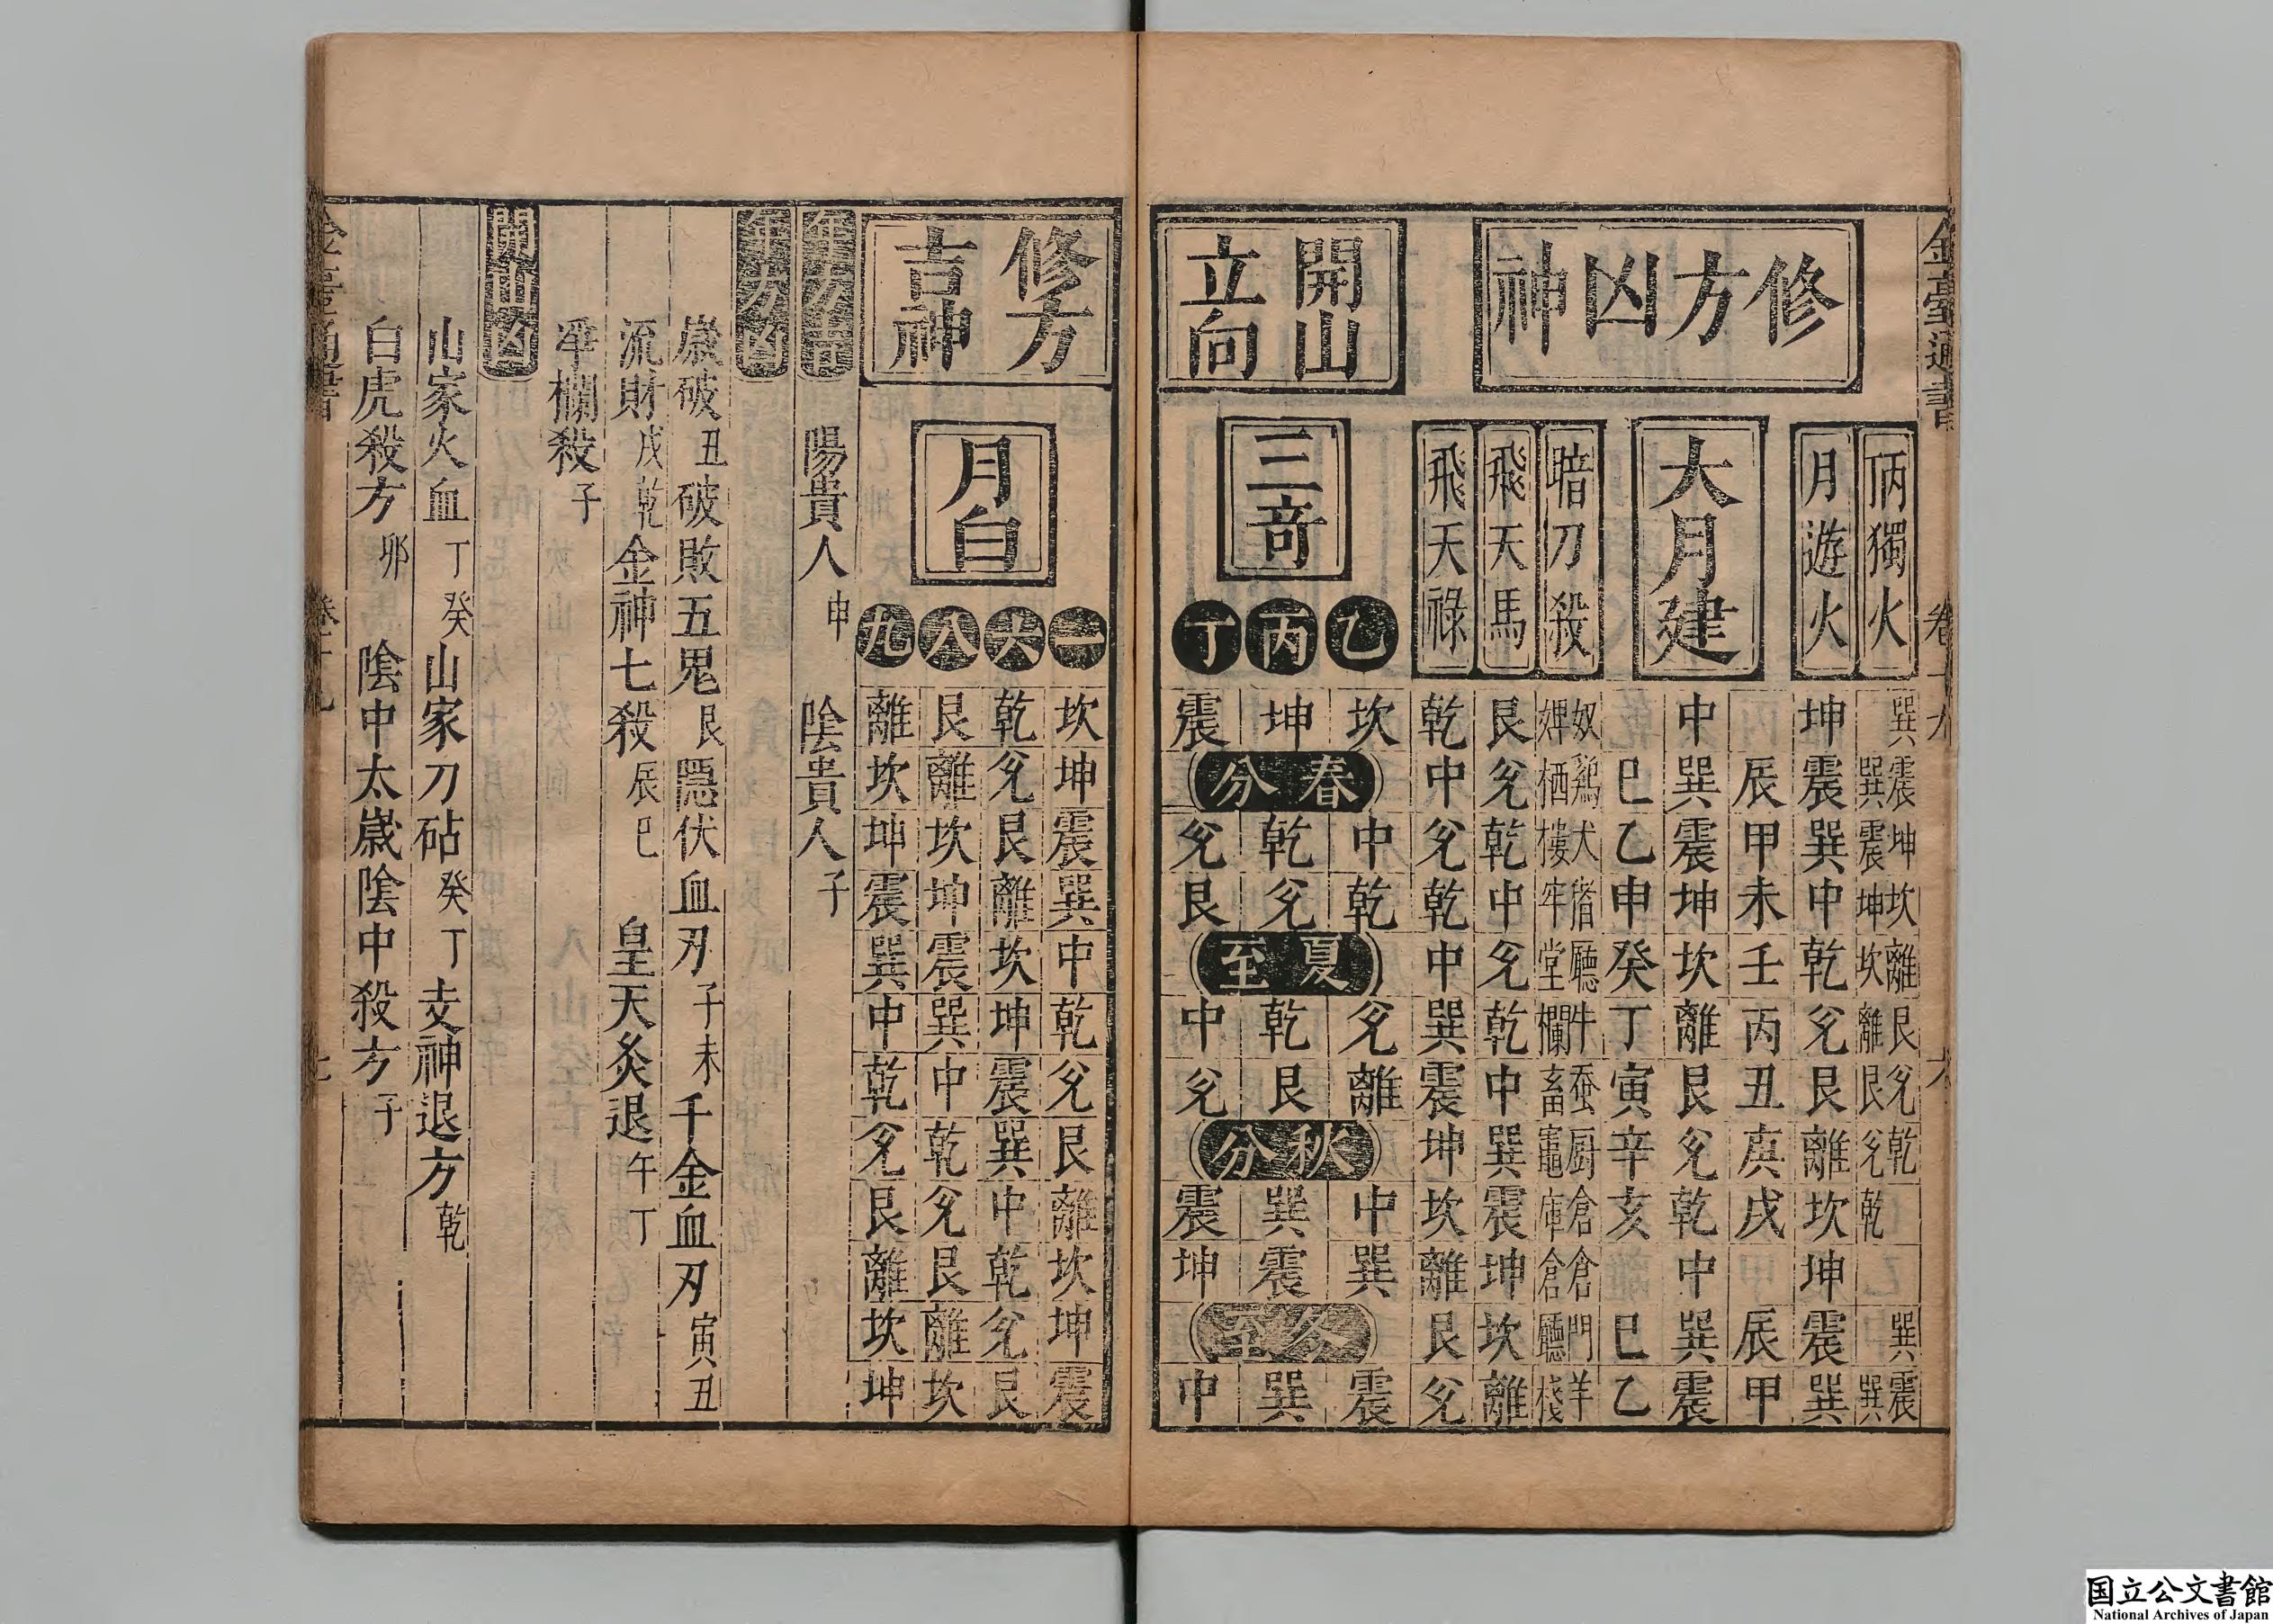 金臺通書 卷十九 六
修方凶神
丙獨火 巽 震巽 坤震 坎坤 離坎 艮離 兌艮 乾兌 乾 巽 震巽
月遊火 坤 震 巽 中 乾 兌 艮 離 坎 坤 震 巽
辰 甲 未 壬 丙 丑 庚 戌 辰 甲
大月建 中 巽 震 坤 坎 離 艮 兌 乾 中 巽 震
巳 乙 申 癸 丁 寅 辛 亥 巳 乙
暗刀殺 奴婢 鷄栖 犬樓 猪牢 廳堂 牛欄 蚕畜 厨竈 倉庫 倉倉 門廳 羊棧
飛天馬 艮 兌 乾 中 兌 乾 中 巽 震 坤 坎 離
飛天祿 乾 中 兌 乾 中 巽 震 坤 坎 離 艮 兌
開山立向
三奇
乙 丙 丁
坎 坤 震
春分
中 乾 兌
乾 兌 艮
夏至
兌 乾 中
離 艮 兌
秋分
中 巽 震
巽 震 坤
冬至
震 巽 中
修方吉神
月白
一 坎 坤 震 巽 中 乾 兌 艮 離 坎 坤 震
六 乾 兌 艮 離 坎 坤 震 巽 中 乾 兌 艮
八 艮 離 坎 坤 震 巽 中 乾 兌 艮 離 坎
九 離 坎 坤 震 巽 中 乾 兌 艮 離 坎 坤
修方吉 陽貴人申 陰貴人子
修方凶
歲破丑 破敗五鬼艮 隱伏血刃子未 千金血刃寅丑
流財戌乾 金神七殺辰巳 皇天炙退午丁
牢欄殺子
開山凶
山家火血丁癸 山家刀砧癸丁 支神退方乾
白虎殺方卯 陰中太歲 陰中殺方子
金臺通書 卷十九 七
国立公文書館
National Archives of Japan